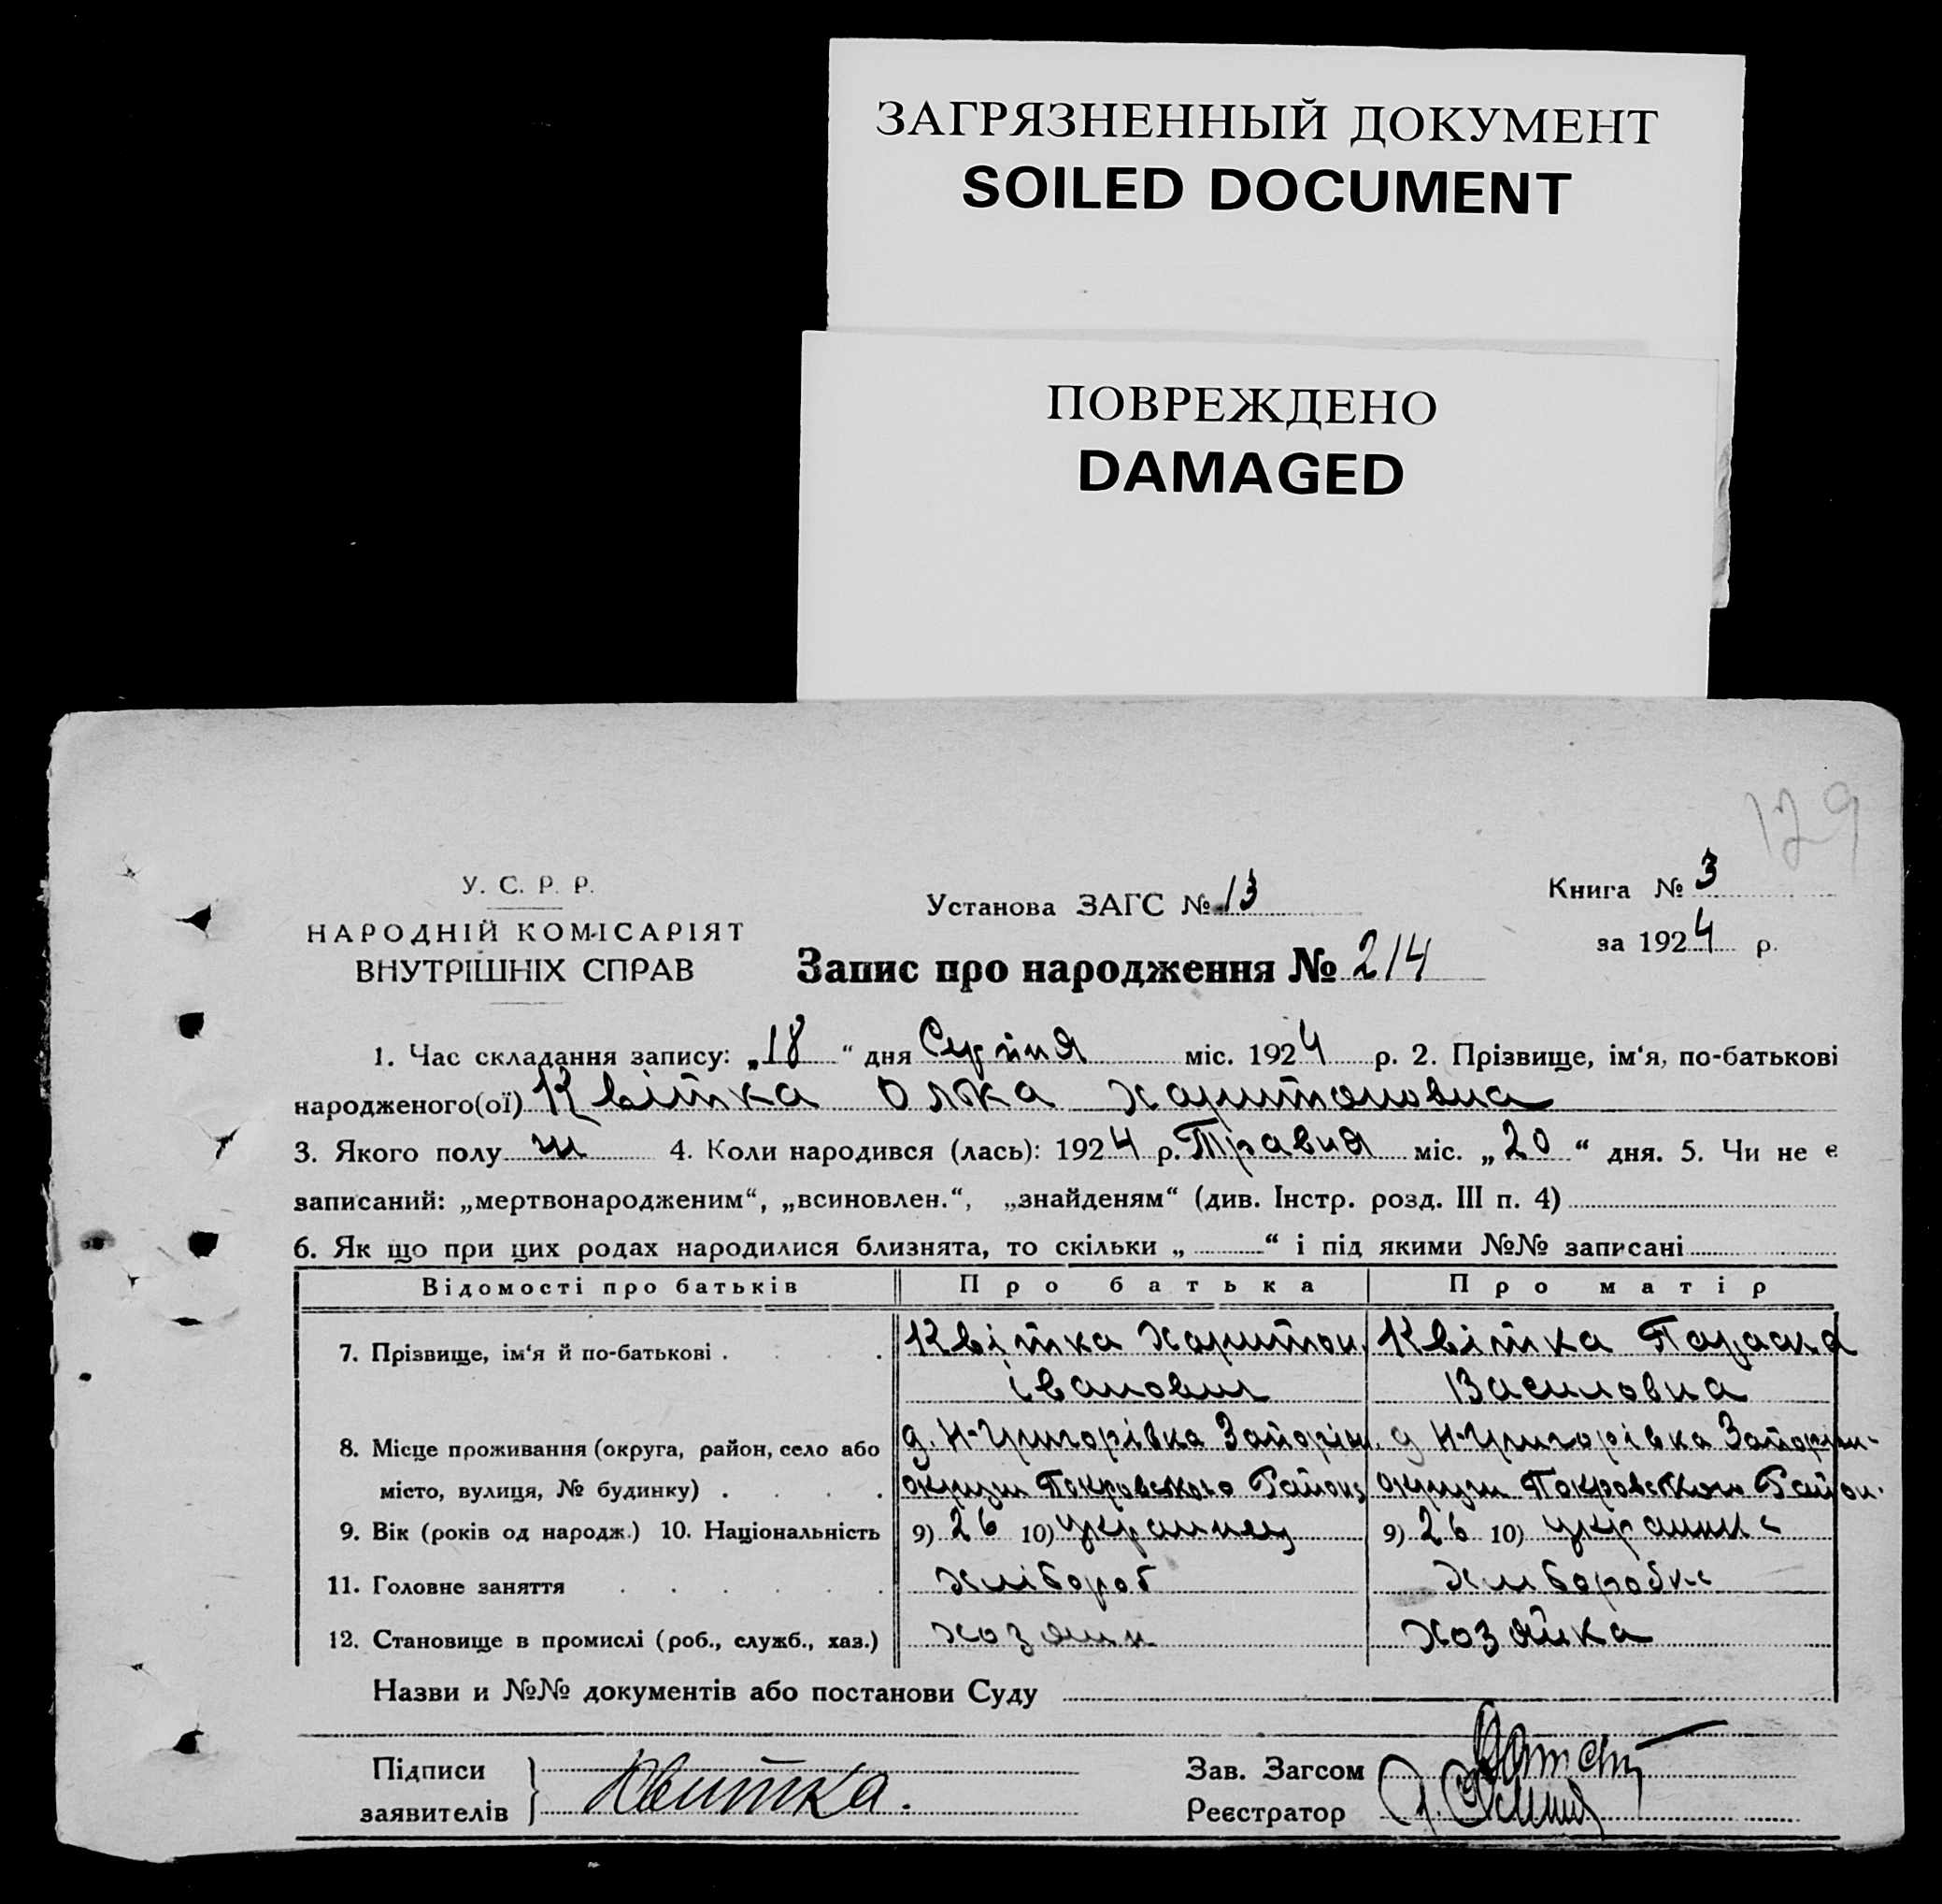 ЗАГРЯЗНЕННЫЙ ДОКУМЕНТ
SOILED DOCUMENT
ПОВРЕЖДЕНО
DAMAGED
129
У. С. Р. Р.
НАРОДНІЙ КОМІСАРІЯТ
ВНУТРІШНІХ СПРАВ
Установа ЗАГС № 13
Книга № 3
за 1924 р.
Запис про народження № 214
1. Час складання запису: „18“ дня Серпня міс. 1924 р. 2. Прізвище, ім‘я, по-батькові
народженого(ої) Квітка Олжа Харитоновна
3. Якого полу ж 4. Коли народився (лась): 1924 р. Травня міс. „20“ дня. 5. Чи не є
записаний: „мертвонародженим“, „всиновлен.“, „знайденям“ (див. Інстр. розд. III п. 4)
6. Як що при цих родах народилися близнята, то скільки „ “ і під якими №№ записані
Відомості про батьків Про батька Про матір
7. Прізвище, ім‘я й по-батькові . . . . Квітка Харитон Квітка Параска
іванович Василовна
8. Місце проживання (округа, район, село або д. Н-Григорівка Запоріж. д Н-Григорівка Запориж-
місто, вулиця, № будинку) . . . . округи Покровського Району округи Покровського Район.
9. Вік (років од народж.) 10. Національність 9) 26 10) украинец 9) 26 10) украинка
11. Головне заняття . . . . . . хлібороб хліборобка
12. Становище в промислі (роб., служб., хаз.) хозяин хозяйка
Назви и №№ документів або постанови Суду
Підписи
заявителів } Квитка.
Зав. Загсом
Реєстратор